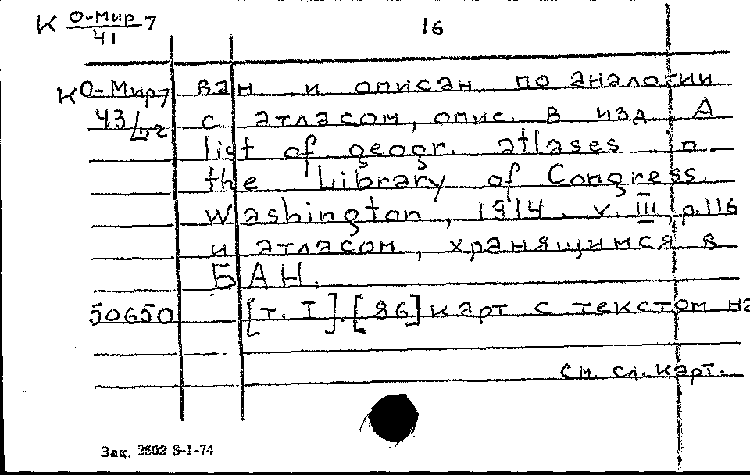 К О-Мир 7
41
16
К О-Мир 7 ван и описан по аналогии
43/ с атласом, опис. в изд. A
list of geogr. atlases in
the Library of Congress.
Washington, 1914. v. III, p. 116
и атласом, хранящимся в
БАН.
50650 [т. I]. [86] карт с текстом на
См. сл. карт.
Зак. 3602 8-I-74